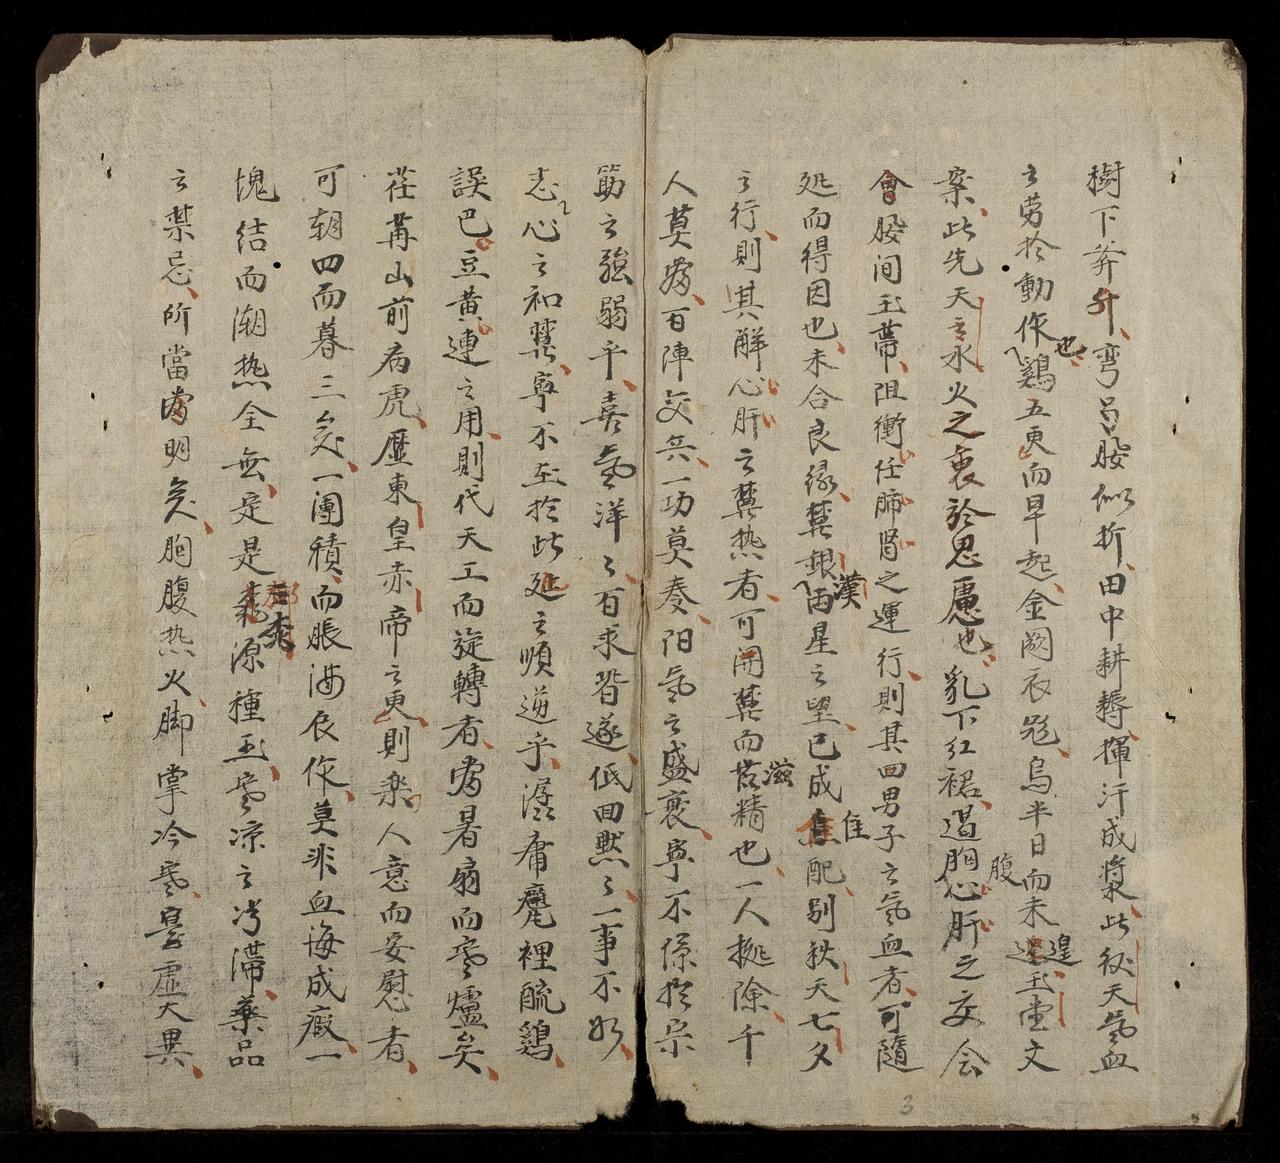 樹下莽升彎呂股似折田中耕耨揮汗成漿此後天氣血
之劳於動作也鷄五更而早起金闕衣𠖥烏半日而未遑玉堂文
案此先天之水火之衷於思慮也乳下红裙遏胸腹心肝之交会
會股间玉帶阻衝任肺肾之運行則其回男子之氣血者可隨
処而得因也未合良缘莫銀漢両星之望已成佳配别秋天七夕
之行則其解心肝之莫热者可開莫而滋精也一人挑除千
人莫為百陣交兵一功莫奏阳氣之盛衰寧不係於宗
筋之強弱乎喜氣洋々百求皆遂低回黙々一事不如
志心之和樊寧不至於此延之順逆乎潺庸瓮裡酼鷄
誤巴豆黄連之用則代天工而旋轉者為暑扇而寒爐矣
茌苒山前病虎歷東皇赤帝之更則楽人意而安慰者
可朝四而暮三矣一團積而脹满長作莫非血海成瘕一
塊结而潮热全無定是桃源種玉寒凉之冷滯藥品
之禁忌所當為明矣胸腹热火脚掌冷寒實虚大異
3